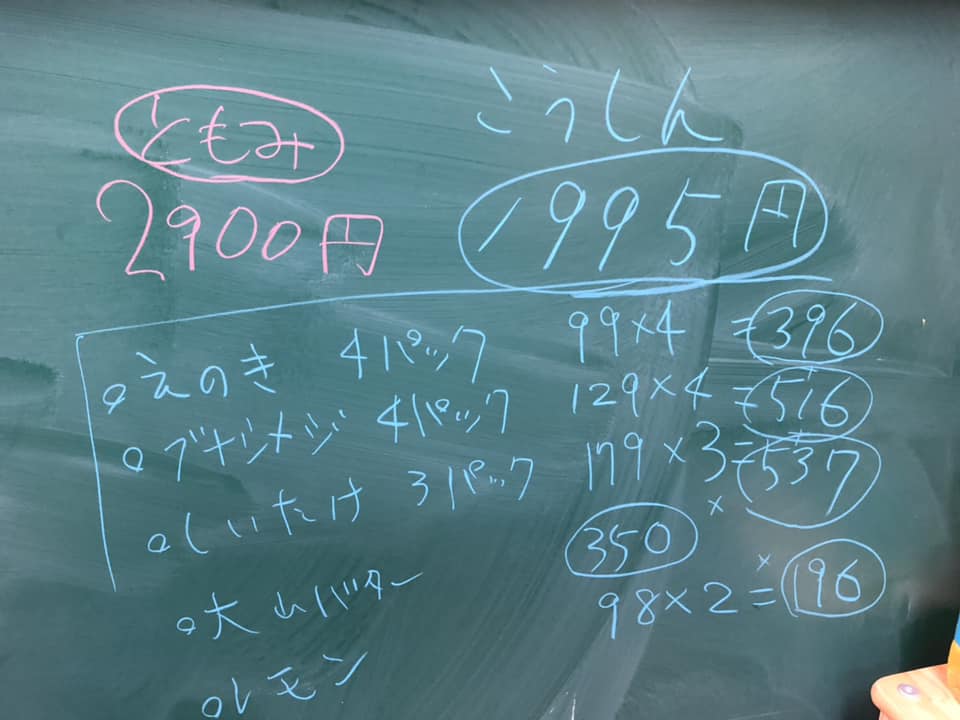 ともみ
2900円
こうしん
1995円
えのき 4パック 99×4=396
ブナシメジ 4パック 129×4=516
しいたけ 3パック 179×3=537
大山バター 350
レモン 98×2=196